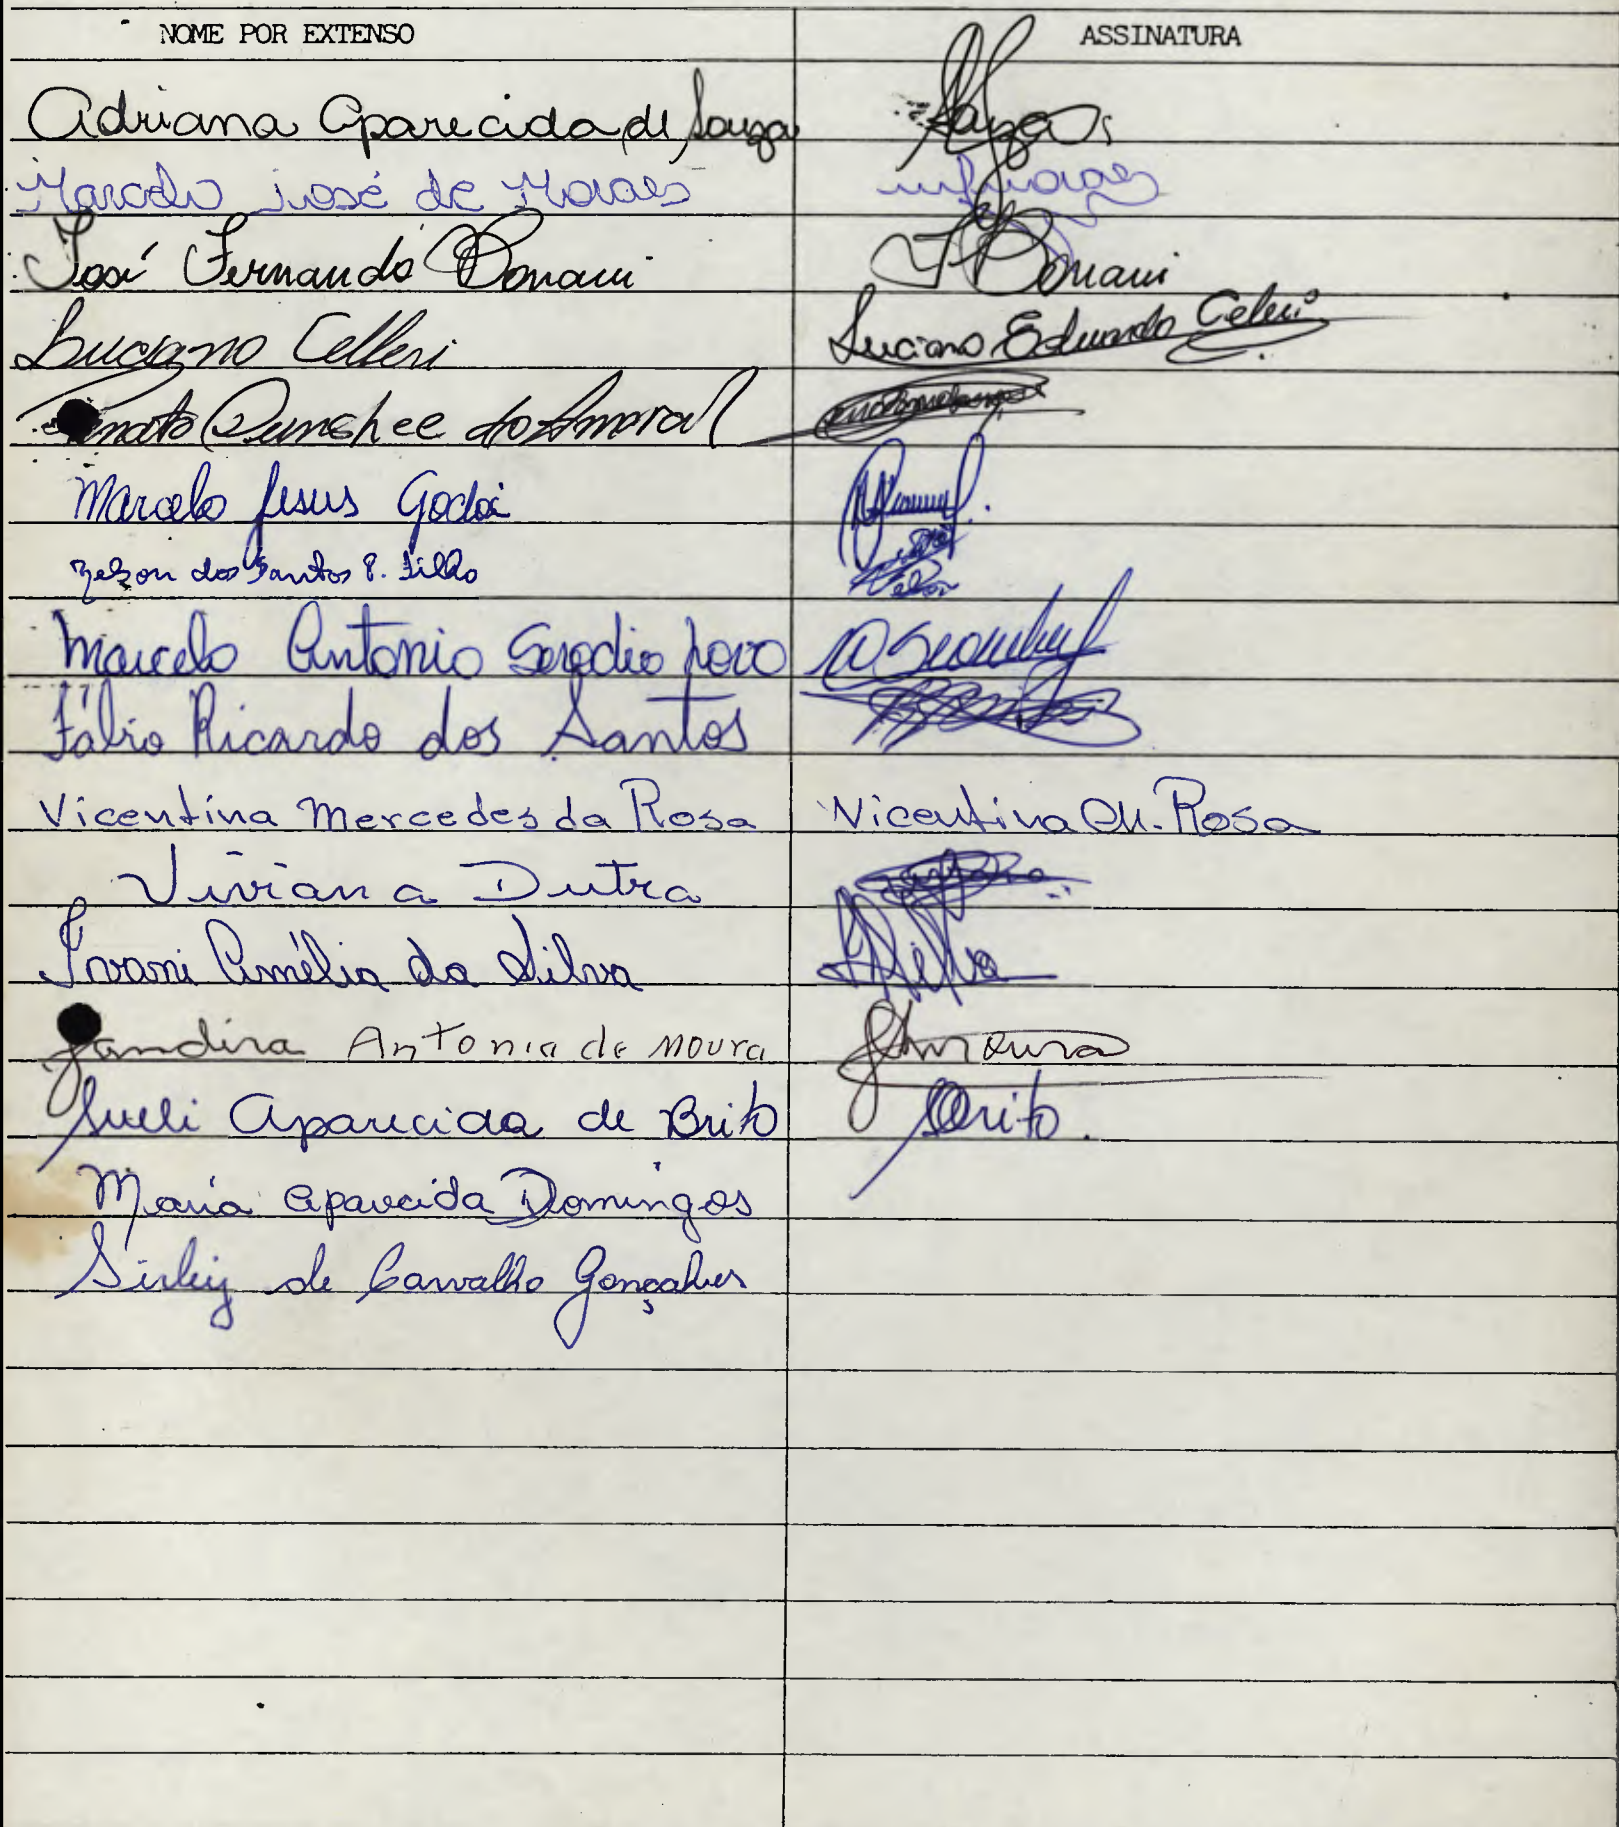 NOME POR EXTENSO ASSINATURA
Adriana Aparecida de Souza
Marcelo José de Moraes
José Fernando Bonani Bonani
Luciano Celleri Luciano Eduardo Celeri
do Amaral
Marcelo Jesus Godoi
dos Santos P. Filho
Marcelo Antonio Serodio
Fábio Ricardo dos Santos
Vicentina Mercedes da Rosa Vicentina M. Rosa
Viviana Dutra
Ivani Amélia da Silva Silva
Jandira Antonia de Moura Moura
Sueli Aparecida de Brito Brito
Maria Aparecida Domingos
Sirley de Carvalho Gonçalves